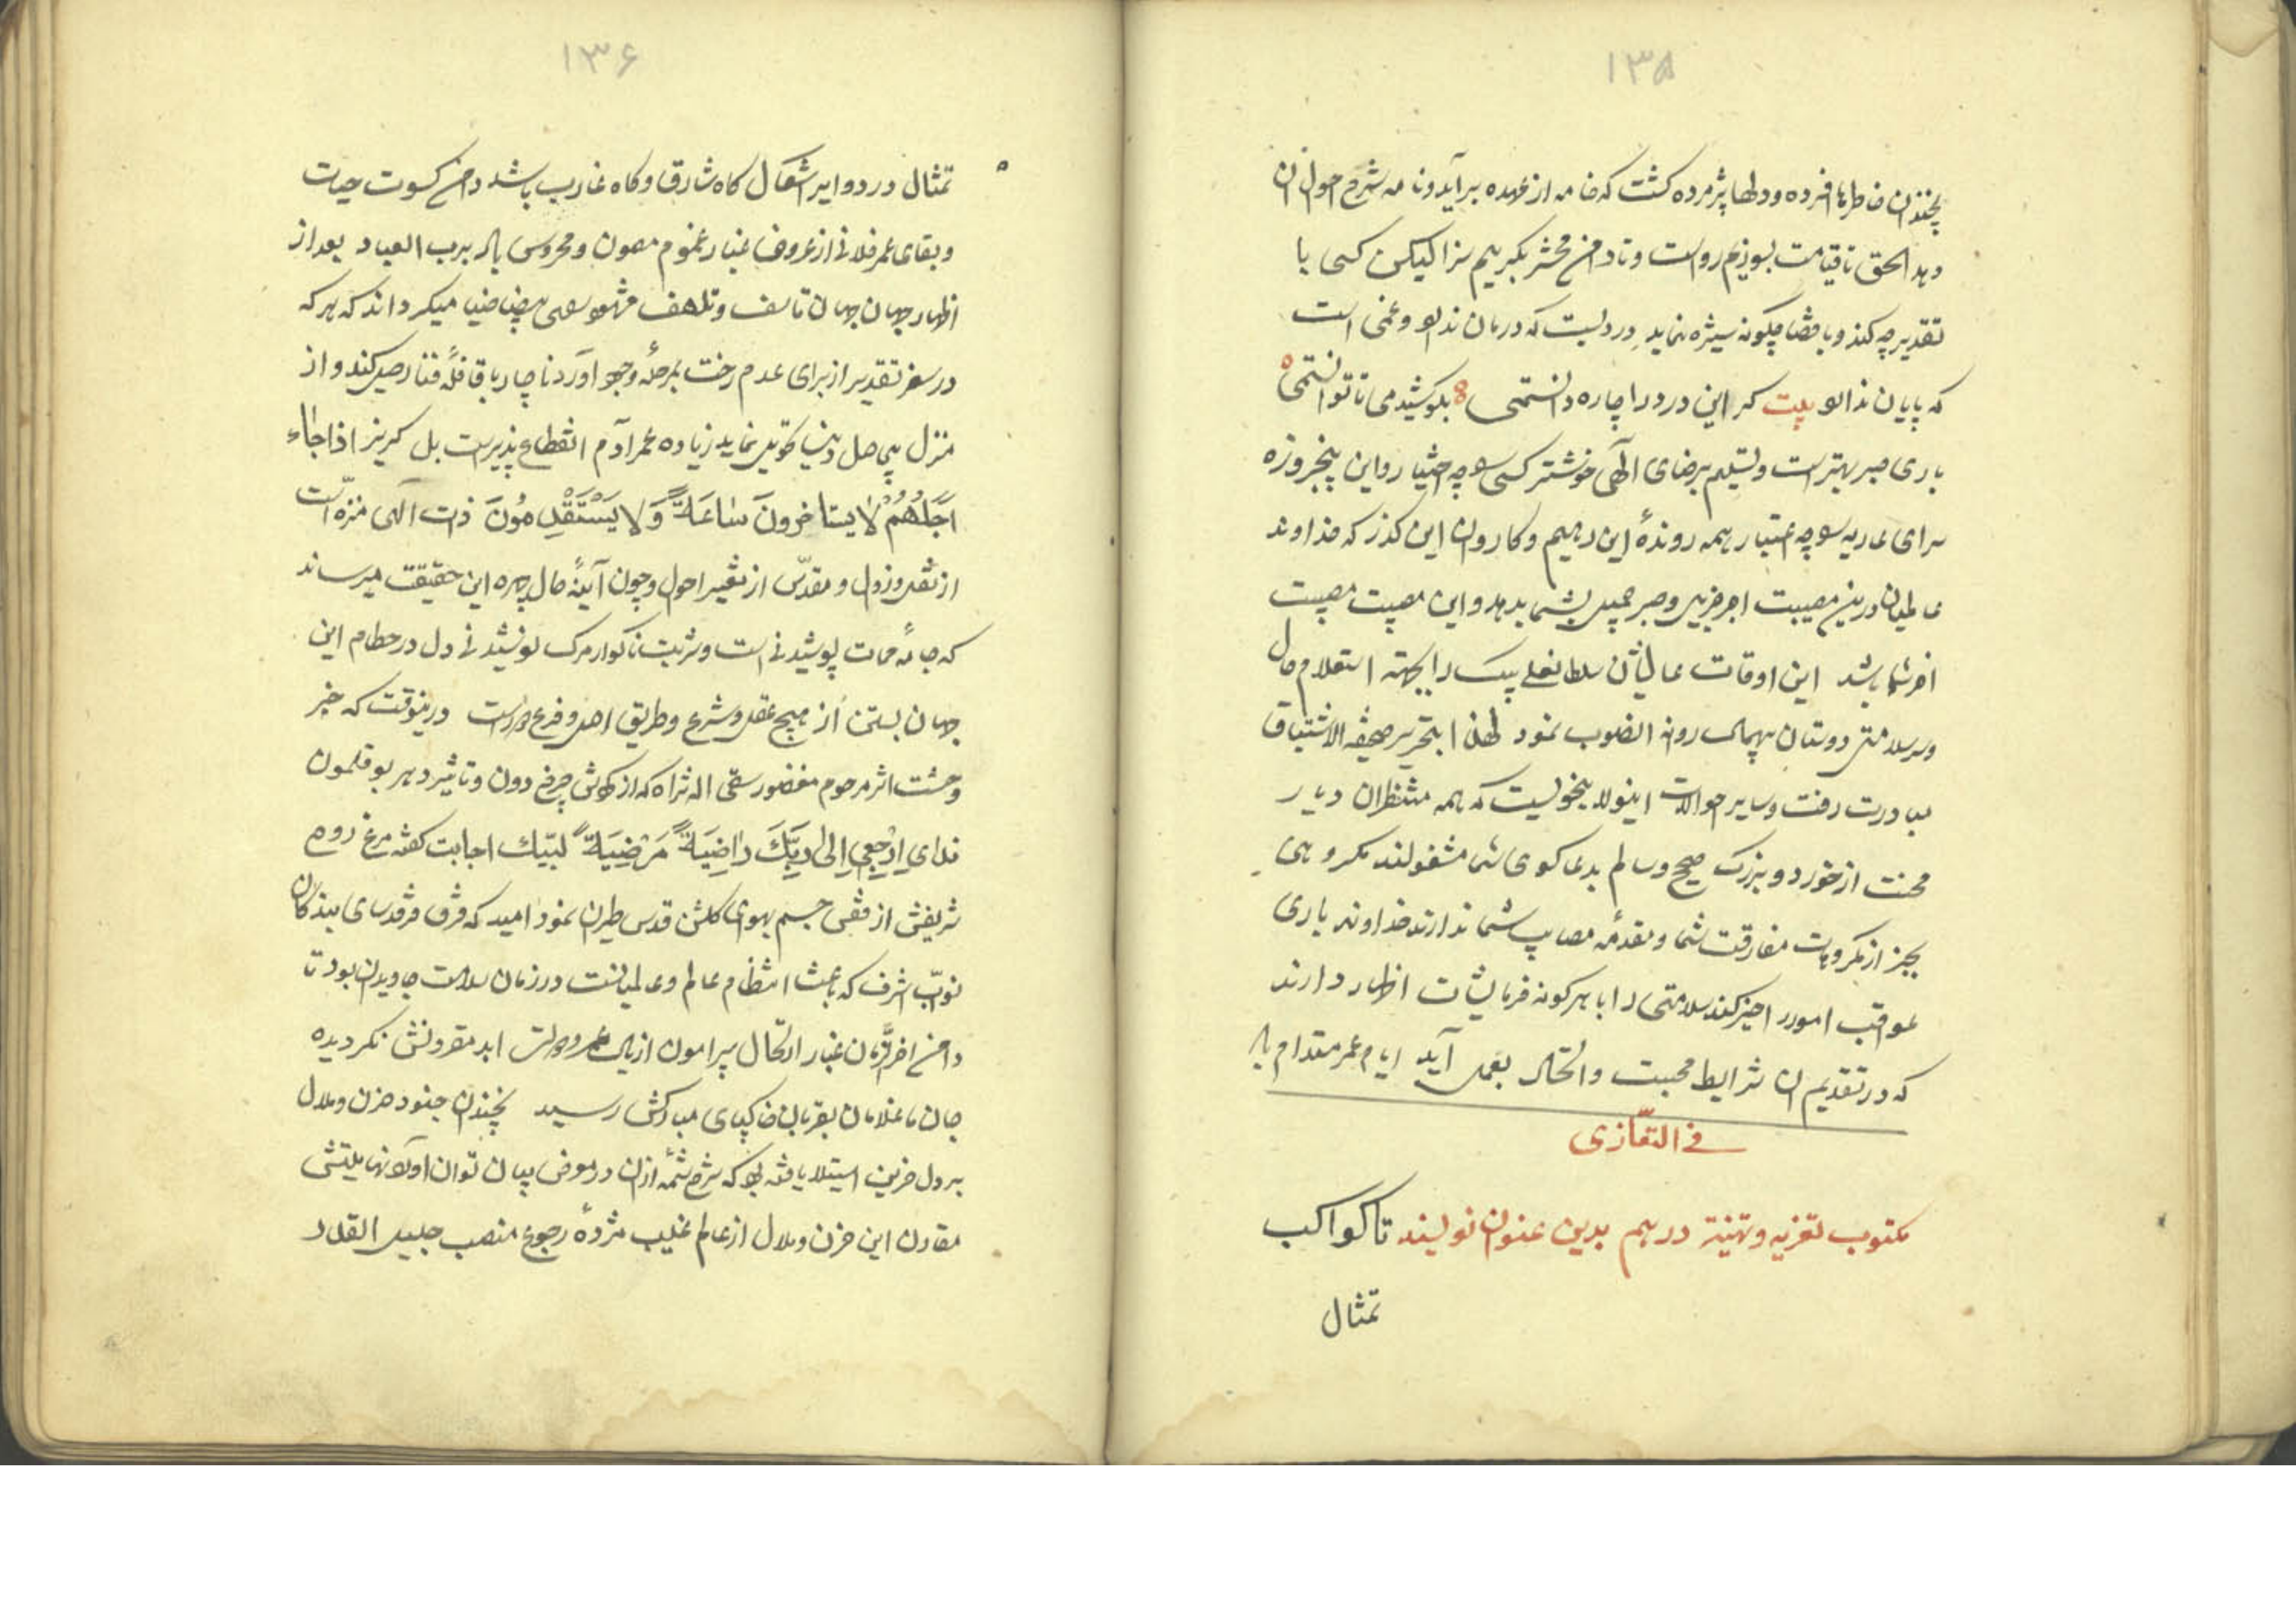 ۱۳۵
بچندان خاطرها افسرده و دلها پژمرده کشت که خامه از عهده برآید و نامه شرح احوال آن
دهد الحق تا قیامت بسوزیم رواست و تا دامن محشر بکرییم سزا لیکن کسی با
تقدیر چه کند و با قضا چکونه ستیزه نماید دردیست که درمان ندارد و غمی است
که پایان ندارد بیت کر این درد را چاره دانستمی بکوشیدمی تا توانستمی
باری صبر بهتر است و تسلیم برضای الهی خوشتر کسی را چه اختیار و این پنجروزه
سرای عاریه را چه اعتبار همه روندهٔ این رهیم و کاروان این کذر که خداوند
عالمیان درین مصیبت اجر جزیل و صبر جمیل بشما بدهد و این مصیبت مصیبت
آخر شما باشد این اوقات عالیشان سلطانعلی بیک را بجهته استعلام حال
و سلامتی دوستان روانه آنصوب نمود لهذا بتحریر صحیفة الاشتیاق
مبادرت رفت و سایر حوالات اینولا بنحویست که همه منتظران دیار
محنت از خورد و بزرک صحیح و سالم بدعاکوی شما مشغولند مکروهی
بجز از مکروهات مفارقت شما و مقدمهٔ مصایب شما ندارند خداوند باری
عواقب امور را خیر کند سلامتی را با هرکونه فرمایشات اظهار دارند
که در تقدیم آن شرایط محبت و اتحاد بعمل آید ایام عمر مستدام باد
فی التعازی
مکتوب تعزیه و تهنیة در هم بدین عنوان نویسند تا کواکب
تمثال
۱۳۶
تمثال در دوایر اشکال کاه شارق و کاه غارب باشد دامن کسوت حیات
و بقای عمر فلانی از عروض غبار غموم مصون و محروس باد برب العباد بعد از
اظهار جهان جهان تاسف و تلهف مشهود رای بیضا ضیا میکرداند که هر که
در سفر تقدیر از برای عدم رخت بمرحلهٔ وجود آورد ناچار با قافلهٔ فنا رحیل کند و از
منزل بیحاصل دنیا تحویل نماید زیاده عمر آدم انقطاع پذیر است بل کریز اذا جاء
اَجَلُهُمْ لا یستاخرونَ ساعَةً وَ لا یَسْتَقْدِمُونَ ذات الهی منزّه است
از نقل و زوال و مقدّس از تغییر احوال و چون آینهٔ حال چهره این حقیقت میرساند
که جامهٔ ممات پوشیدنی است و شربت ناکوار مرک نوشیدنی دل در حطام این
جهان بستن از هیچ عقل و شرع و طریق اصل و فرع دور است درینوقت که خبر
وحشت اثر مرحوم مغفور سقی اله ثراه که از کردش چرخ دون و تاثیر دهر بوقلمون
ندایِ اِرْجِعی اِلیٰ رَبِّکَ راضِیَةً مَرْضِیَةً لبّیک اجابت کفته مرغ روح
شریفش از قفس جسم بهوای کلشن قدس طیران نمود امید که فرق فرقدسای بندکان
نوّاب اشرف که باعث انتظام عالم و عالمیانست در زمان سلامت جاویدان بود تا
دامن آخر الزمان غبار ارتحال پیرامون اذیال عمر و دولت ابد مقرونش نکردیده
جان ما غلامان بقربان خاکپای مبارکش رسید بچندان جنود حزن و ملال
بر دل حزین استیلا یافته بود که شرح شمّهٔ ازان در معرض بیان توان آورد نهایتش
مقارن این حزن و ملال از عالم غیب مژدهٔ رجوع منصب جلیل القدر